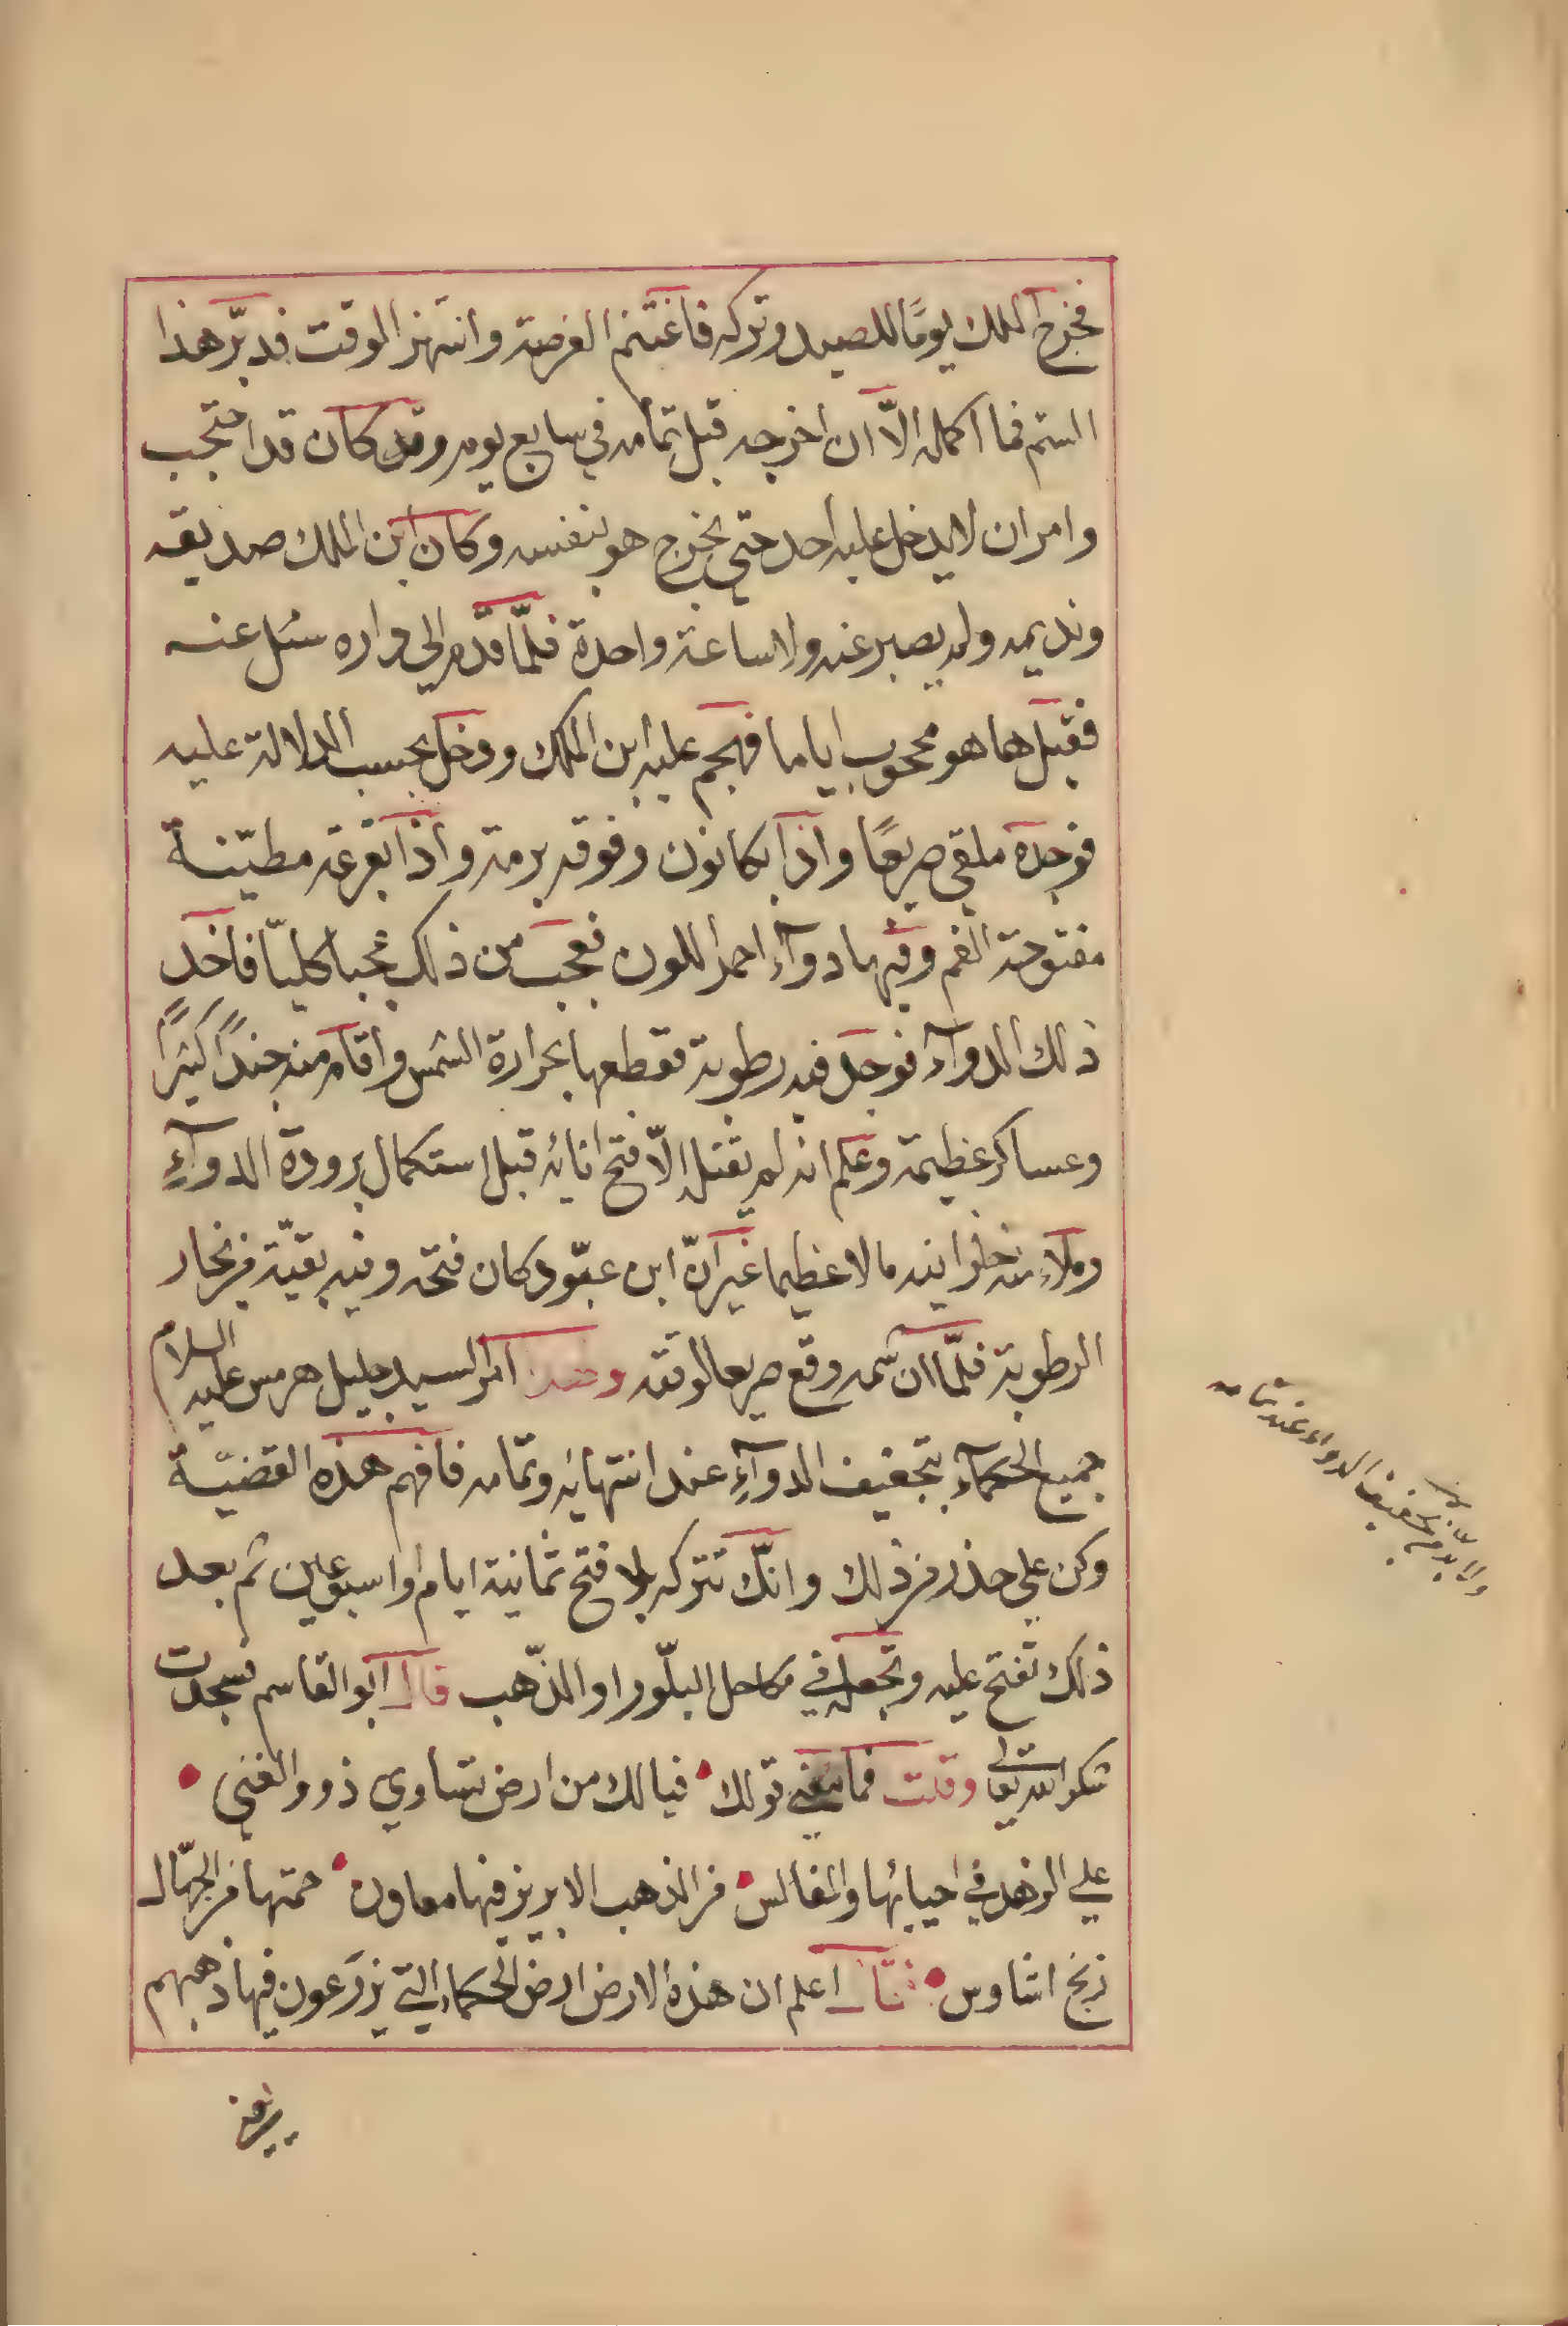 فخرج الملك يومًا للصيد وتركه فاغتنم الفرصة وانتهز الوقت فدبّر هذا
السّم فما اكمله الاّ ان اخرجه قبل تمامه في سابع يومه وقد كان قد احتجب
وامر ان لا يدخل عليه احد حتى يخرج هو بنفسه وكان ابن الملك صديقه
ونديمه ولم يصبر عنه ولا ساعة واحدة فلمّا قدم الى داره سئل عنه
فقيل ها هو محجوب اياما فهجم عليه ابن الملك ودخل بحسب الدلالة عليه
فوجده ملقى صريعًا واذا بكانون وفوقه برمة واذا بقرعة مطيّنة
مفتوحة الفم وفيها دوآء احمر اللون فعجب من ذلك عجبا كليّا فاخذ
ذلك الدوآء فوجد فيه رطوبة فقطعها بحرارة الشمس واقام منه جندًا كثيرًا
وعساكر عظيمة وعلم انه لم يقتله الاّ فتح انائه قبل استكمال برودة الدوآءِ
وملاء منه خزاينه مالا عظيما غير انّ ابن عبّود كان فتحه وفيه بقيّة من بخار
الرطوبة فلمّا ان شمه وقع صريعا لوقته ولهذا امر السيد جليل هرمس عليه السلام
جميع الحكمآء بتجفيف الدوآءِ عند انتهائه وتمامه فافهم هذه القضيّة
وكن على حذر من ذلك وانّك تتركه بلا فتح ثمانية ايام او اسبوعين ثم بعد
ذلك تفتح عليه وتجعله في مكاحل البلّور او الذّهب قال ابو القاسم فسجدت
شكرا لله تعالى وقلت فما معنى قولك فيا لك من ارض تساوي ذوو الغنى
على الزهد في احيائها والمفالس من الذهب الابريز فيها معاون حمتها من الجهّال
زنج اشاوس فقال اعلم ان هذه الارض ارض الحكماء التي يزرعون فيها ذهبهم
ولا بدّ من تجفيف الدواء عند تمامه